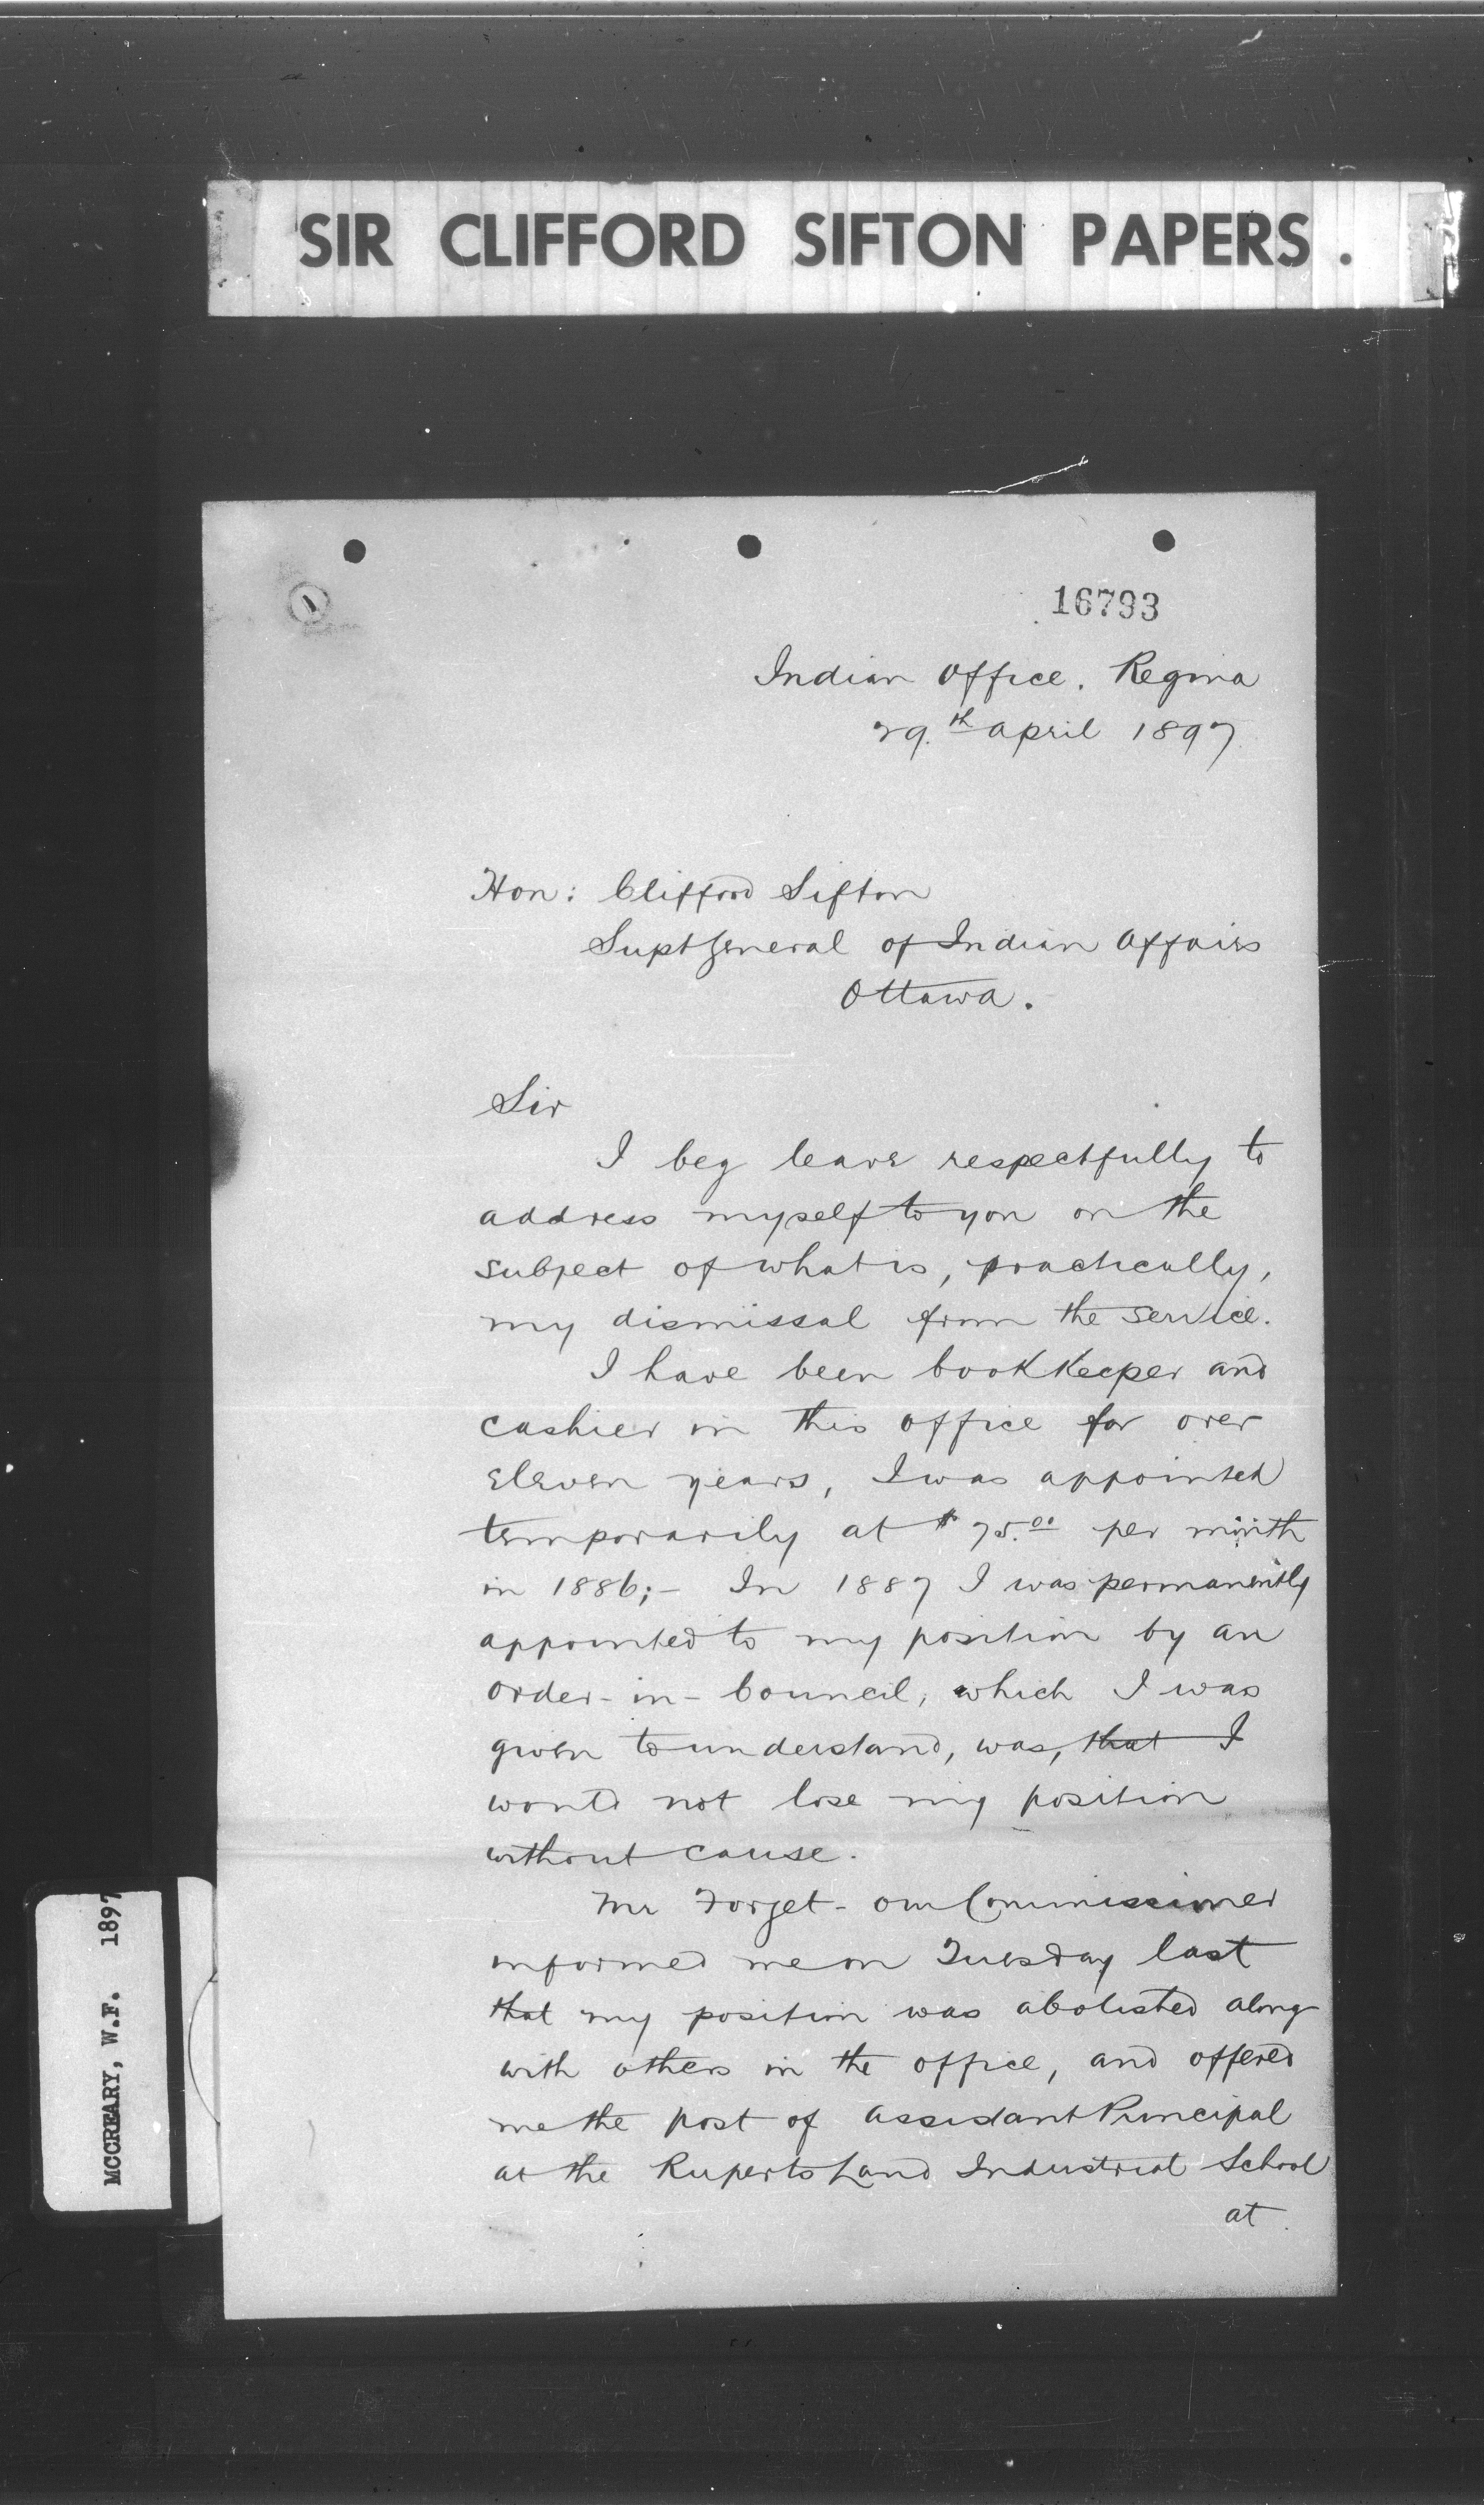 SIR CLIFFORD SIFTON PAPERS.
1
16793
Indian Office. Regina
29.th April 1897
Hon: Clifford Sifton
Supt General of Indian Affairs
Ottawa.
Sir
I beg leave respectfully to
address myself to you on the
subject of what is, practically,
my dismissal from the service.
I have been bookkeeper and
cashier in this office for over
eleven years, I was appointed
temporarily at $75.00 per month
in 1886;- In 1887 I was permanently
appointed to my position by an
order-in-Council, which I was
given to understand, was, that I
would not lose my position
without cause.
Mr Forget - our Commissioner
informed me on Tuesday last
that my position was abolished along
with others in the office, and offered
me the post of Assistant Principal
at the Ruperts Land Industrial School
at
MCCREARY, W.F. 1897